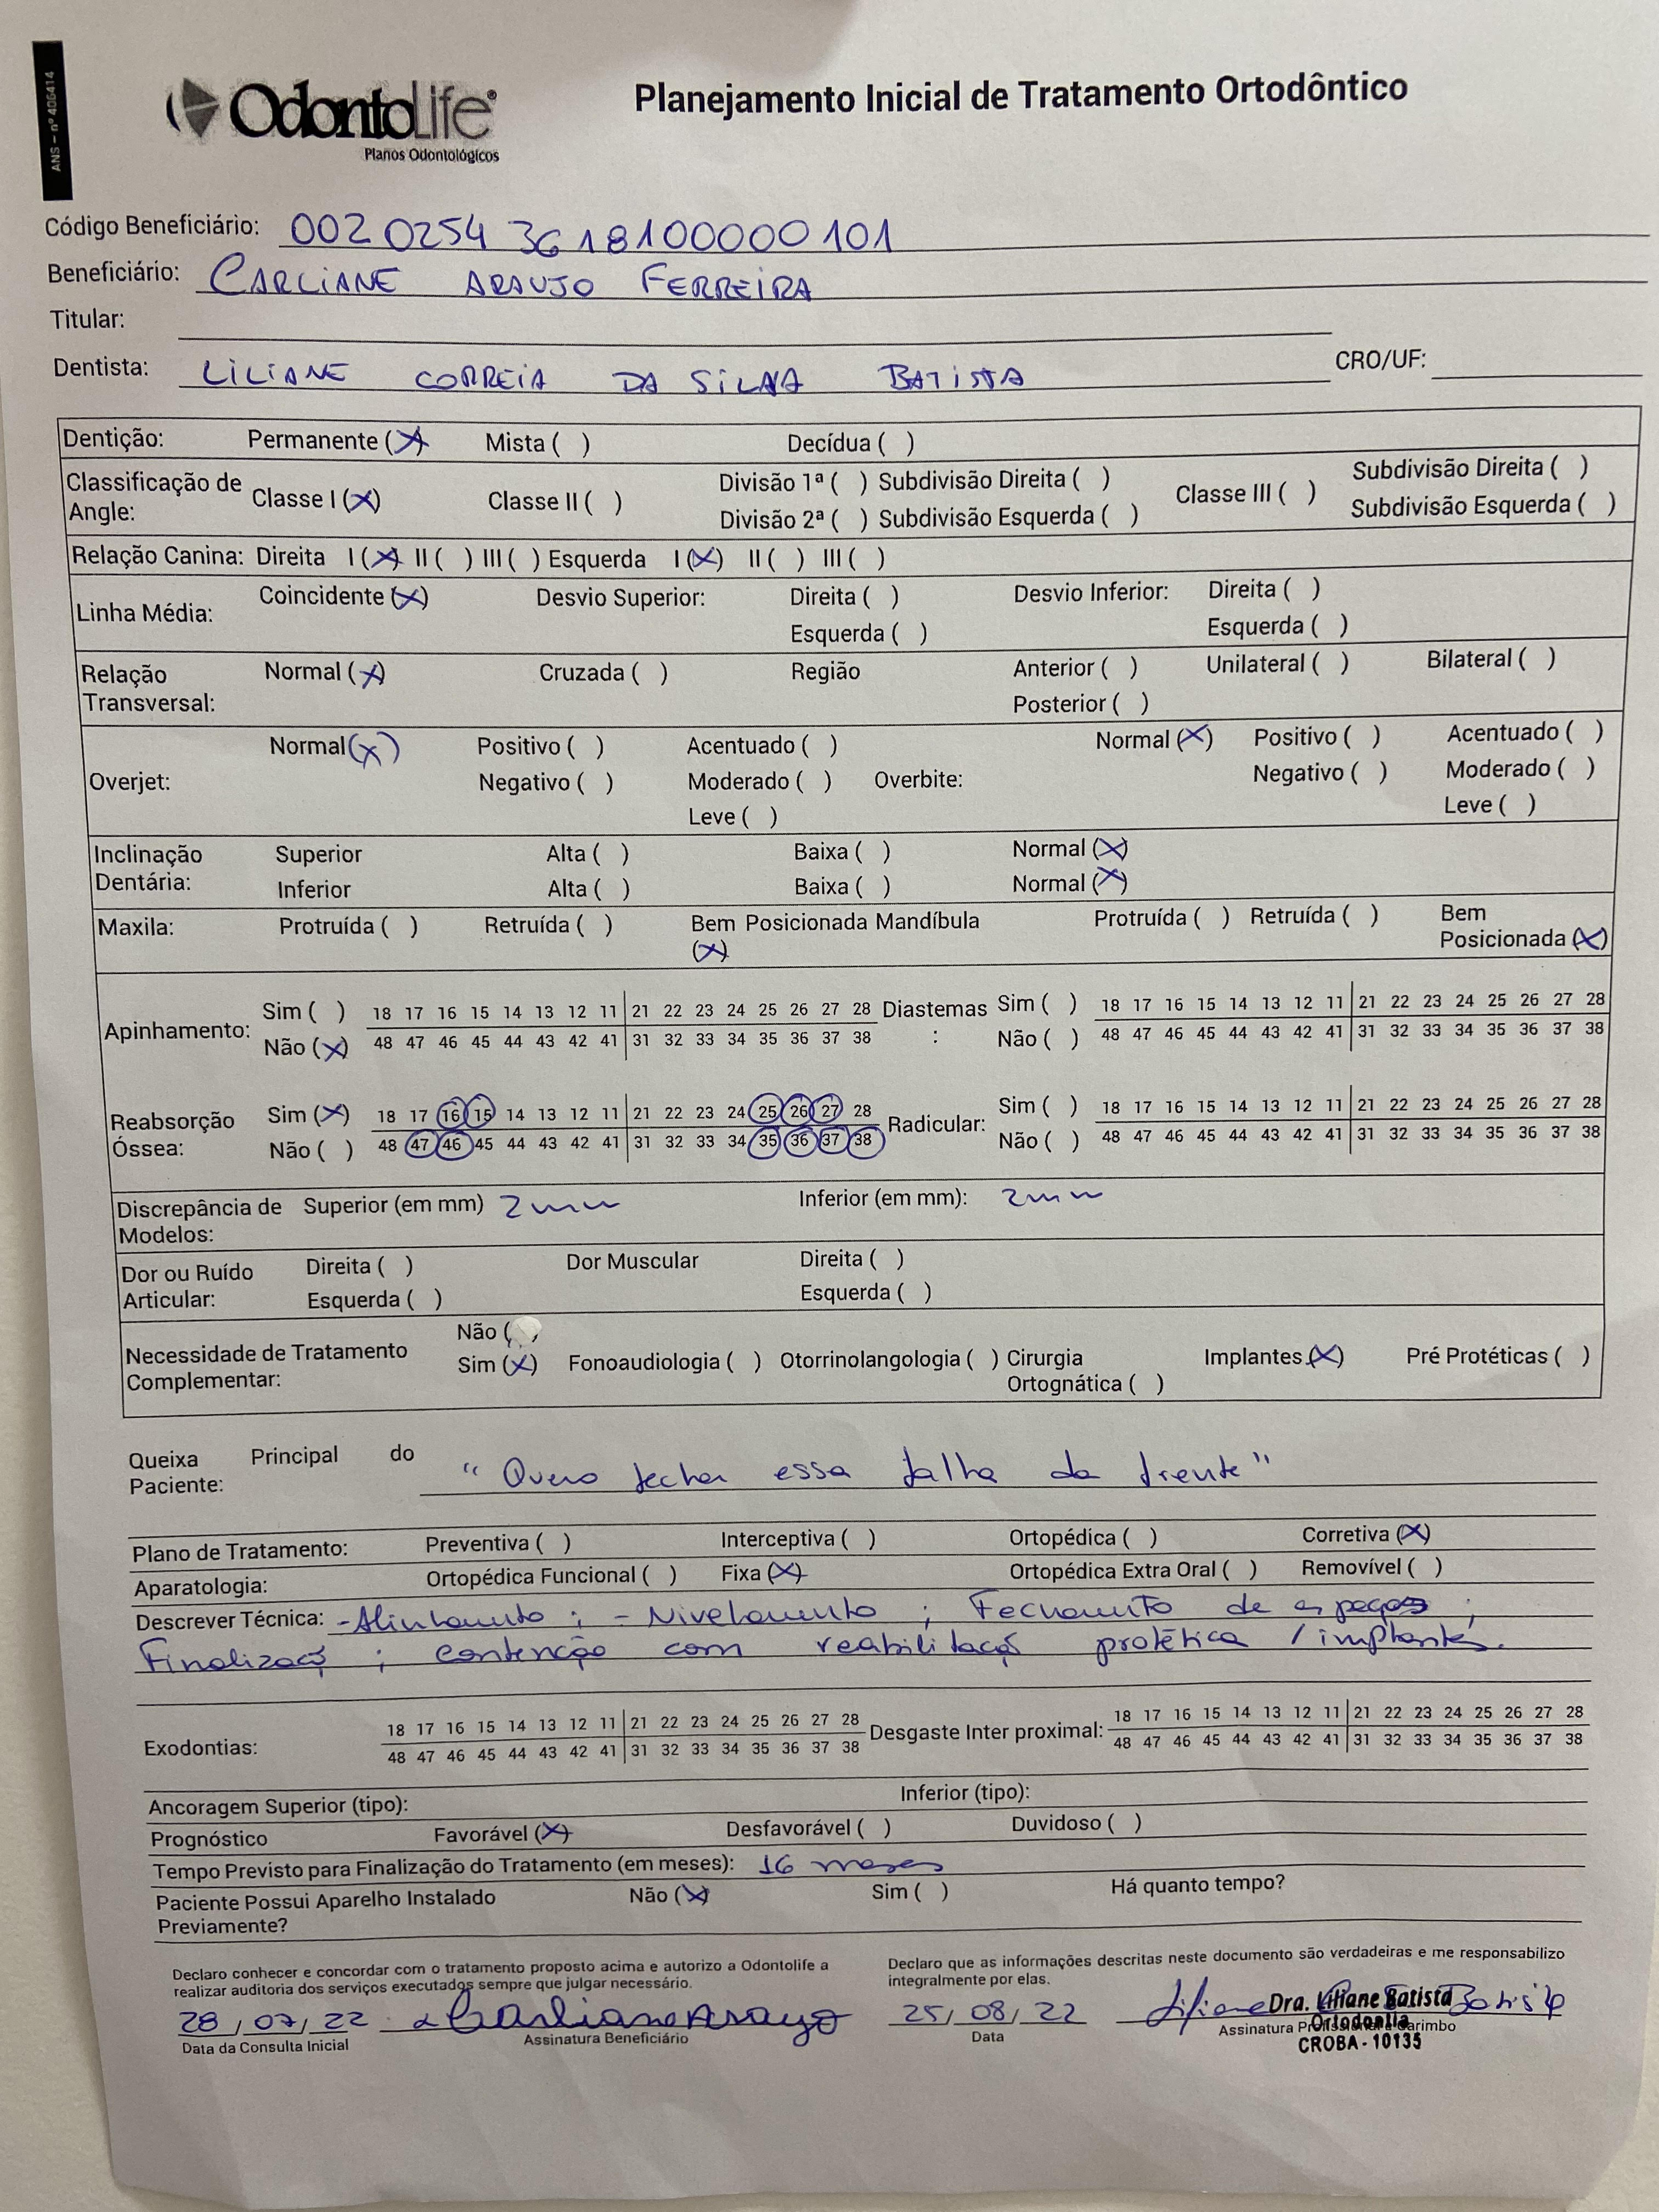 ANS – nº 406414
OdontoLife®
Planos Odontológicos
Planejamento Inicial de Tratamento Ortodôntico
Código Beneficiário: 002 0254 3618100000101
Beneficiário: CARLIANE ARAUJO FERREIRA
Titular:
Dentista: LILIANE CORREIA DA SILVA BATISTA CRO/UF:
Dentição: Permanente (X) Mista ( ) Decídua ( )
Classificação de Angle: Classe I (X) Classe II ( ) Divisão 1ª ( ) Subdivisão Direita ( ) Classe III ( ) Subdivisão Direita ( )
Divisão 2ª ( ) Subdivisão Esquerda ( ) Subdivisão Esquerda ( )
Relação Canina: Direita I (X) II ( ) III ( ) Esquerda I (X) II ( ) III ( )
Linha Média: Coincidente (X) Desvio Superior: Direita ( ) Desvio Inferior: Direita ( )
Esquerda ( ) Esquerda ( )
Relação Transversal: Normal (X) Cruzada ( ) Região Anterior ( ) Unilateral ( ) Bilateral ( )
Posterior ( )
Overjet: Normal (X) Positivo ( ) Acentuado ( ) Overbite: Normal (X) Positivo ( ) Acentuado ( )
Negativo ( ) Moderado ( ) Negativo ( ) Moderado ( )
Leve ( ) Leve ( )
Inclinação Dentária: Superior Alta ( ) Baixa ( ) Normal (X)
Inferior Alta ( ) Baixa ( ) Normal (X)
Maxila: Protruída ( ) Retruída ( ) Bem Posicionada (X) Mandíbula Protruída ( ) Retruída ( ) Bem Posicionada (X)
Apinhamento: Sim ( ) 18 17 16 15 14 13 12 11 21 22 23 24 25 26 27 28 Diastemas : Sim ( ) 18 17 16 15 14 13 12 11 21 22 23 24 25 26 27 28
Não (X) 48 47 46 45 44 43 42 41 31 32 33 34 35 36 37 38 Não ( ) 48 47 46 45 44 43 42 41 31 32 33 34 35 36 37 38
Reabsorção Óssea: Sim (X) 18 17 16 15 14 13 12 11 21 22 23 24 25 26 27 28 Radicular: Sim ( ) 18 17 16 15 14 13 12 11 21 22 23 24 25 26 27 28
Não ( ) 48 47 46 45 44 43 42 41 31 32 33 34 35 36 37 38 Não ( ) 48 47 46 45 44 43 42 41 31 32 33 34 35 36 37 38
Discrepância de Modelos: Superior (em mm) 2mm Inferior (em mm): 2mm
Dor ou Ruído Articular: Direita ( ) Dor Muscular Direita ( )
Esquerda ( ) Esquerda ( )
Necessidade de Tratamento Complementar: Não ( )
Sim (X) Fonoaudiologia ( ) Otorrinolangologia ( ) Cirurgia Ortognática ( ) Implantes (X) Pré Protéticas ( )
Queixa Principal do Paciente: "Quero fechar essa falha da frente"
Plano de Tratamento: Preventiva ( ) Interceptiva ( ) Ortopédica ( ) Corretiva (X)
Aparatologia: Ortopédica Funcional ( ) Fixa (X) Ortopédica Extra Oral ( ) Removível ( )
Descrever Técnica: - Alinhamento ; - Nivelamento ; Fechamento de espaços ;
Finalização ; contenção com reabilitação protética / implantes.
Exodontias: 18 17 16 15 14 13 12 11 21 22 23 24 25 26 27 28 Desgaste Inter proximal: 18 17 16 15 14 13 12 11 21 22 23 24 25 26 27 28
48 47 46 45 44 43 42 41 31 32 33 34 35 36 37 38 48 47 46 45 44 43 42 41 31 32 33 34 35 36 37 38
Ancoragem Superior (tipo): Inferior (tipo):
Prognóstico Favorável (X) Desfavorável ( ) Duvidoso ( )
Tempo Previsto para Finalização do Tratamento (em meses): 16 meses
Paciente Possui Aparelho Instalado Previamente? Não (X) Sim ( ) Há quanto tempo?
Declaro conhecer e concordar com o tratamento proposto acima e autorizo a Odontolife a
realizar auditoria dos serviços executados sempre que julgar necessário.
Declaro que as informações descritas neste documento são verdadeiras e me responsabilizo
integralmente por elas.
28/07/22 Carliane Araujo 25/08/22 Liliane Batista
Data da Consulta Inicial Assinatura Beneficiário Data Assinatura Profissional e Carimbo
Dra. Liliane Batista
Ortodontia
CROBA - 10135